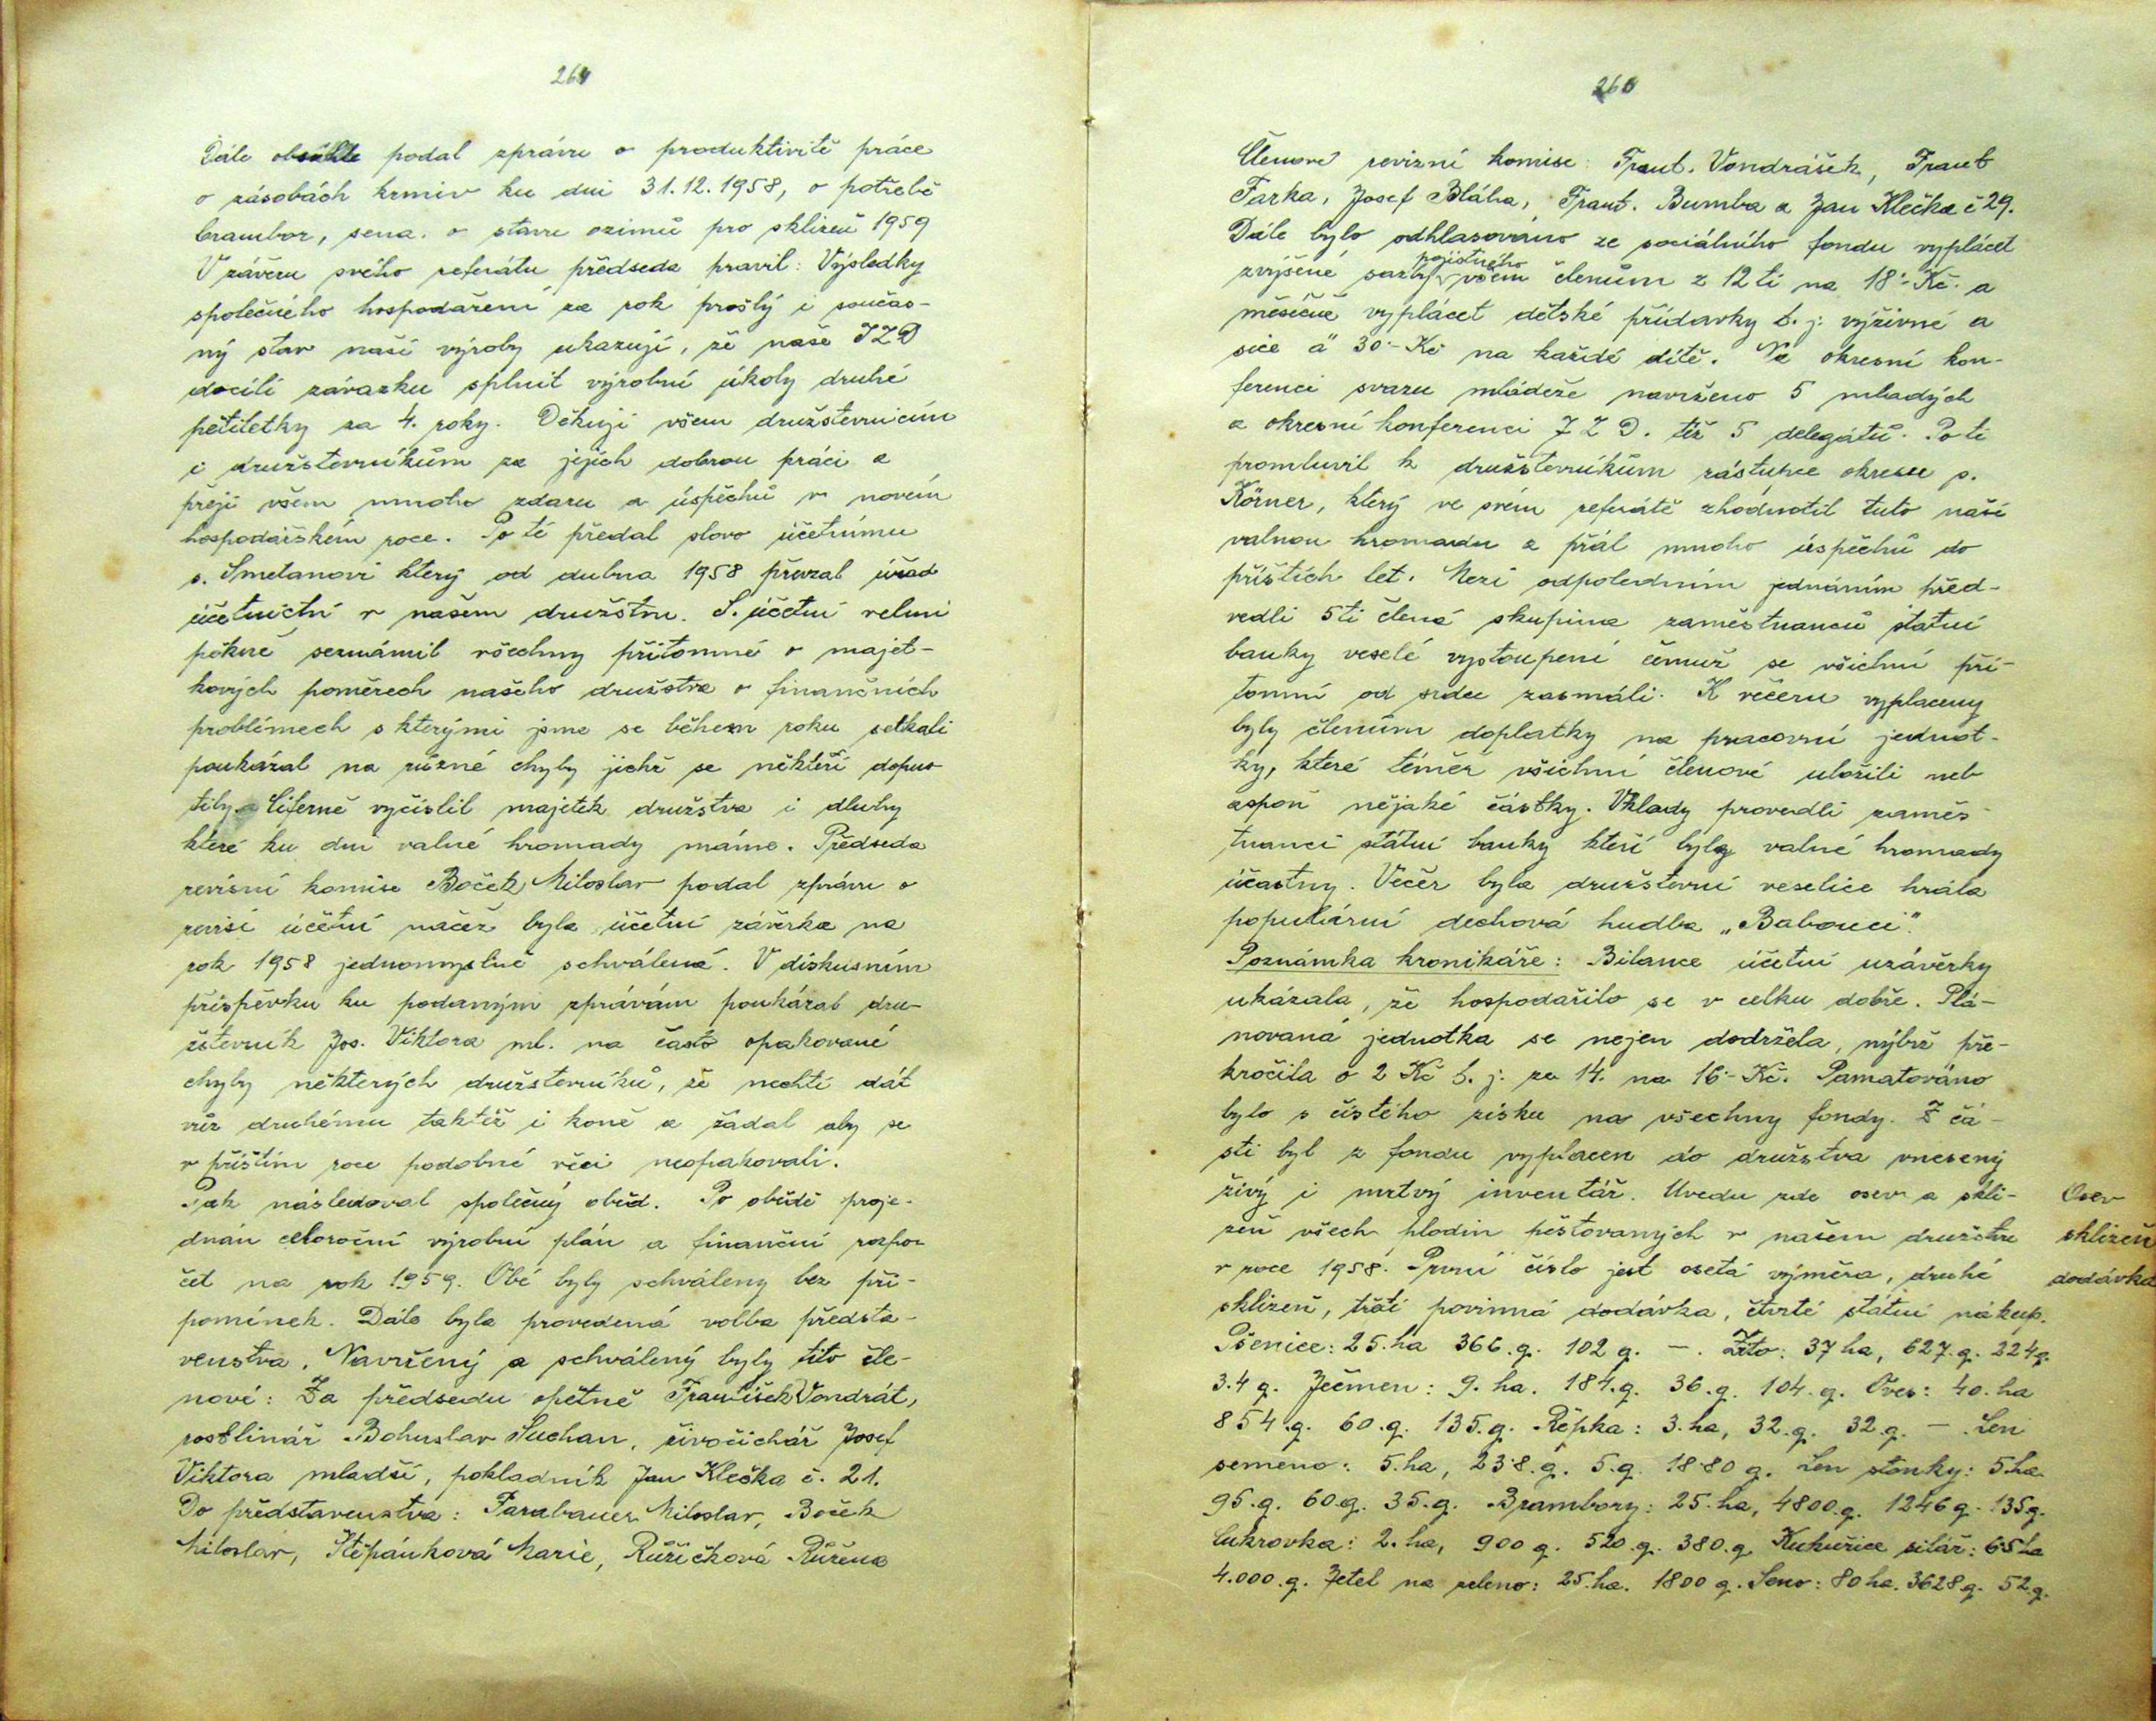 264
Dále obsáhle podal zprávu o produktivitě práce
o zásobách krmiv ku dni 31.12.1958, o potřebě
brambor, sena. o stavu ozimů pro sklizeň 1959
V závěru svého referátu předseda pravil: Výsledky
společného hospodaření za rok prošlý i součas-
ný stav naší výroby ukazují, že naše JZD
docílí závazku splnit výrobní úkoly druhé
pětiletky za 4. roky. Děkuji všem družstevnicím
i družstevníkům za jejich dobrou práci a
přeji všem mnoho zdaru a úspěchů v novém
hospodářském roce. Po té předal slovo účetnímu
s. Smetanovi který od dubna 1958 převzal úřad
účetnictví v našem družstvu. S. účetní velmi
pěkně seznámil všechny přítomné o majet-
kových poměrech našeho družstva o finančních
problémech s kterými jsme se během roku setkali
poukázal na různé chyby jichž se někteří dopus
tily a Ciferně vyčíslil majetek družstva i dluhy
které ku dni valné hromady máme. Předseda
revisní komise Boček Miloslav podal zprávu o
revisi účetní načež byla účetní závěrka na
rok 1958 jednomyslně schválená. V diskusním
příspěvku ku podaným zprávám poukázal dru-
žstevník Jos. Viktora ml. na často opakované
chyby některých družstevníků, že nechtí dát
vůz druhému taktéž i koně a žádal aby se
v příštím roce podobné věci neopakovali.
Pak následoval společný oběd. Po obědě proje-
dnán celoroční výrobní plán a finanční rozpo
čet na rok 1959. Obě byly schváleny bez při-
pomínek. Dále byla provedená volba předsta-
venstva. Navržený a schválený byly tito čle-
nové: Za předsedu opětně František Vondrát,
rostlinář Bohuslav Suchan, živočichář Josef
Viktora mladší, pokladník Jan Klečka č. 21.
Do představenstva: Farabauer Miloslav, Boček
Miloslav, Štěpánková Marie, Růžičková Růžena
260
Členové revizní komise: Frant. Vondrášek, Frant
Farka, Josef Bláha, Frant. Bumba a Jan Klečka č 29.
Dále bylo odhlasováno ze sociálního fondu vyplácet
zvýšené sazby pojistného všem členům z 12 ti na 18·- Kč. a
měsíčně vyplácet dětské přídavky t. j. výživné a
sice á 30·- Kč na každé dítě. Na okresní kon-
ferenci svazu mládeže navrženo 5 mladých
a okresní konferenci JZD. též 5 delegátů. Po té
promluvil k družstevníkům zástupce okresu s.
Körner, který ve svém referátě zhodnotil tuto naší
valnou hromadu a přál mnoho úspěchů do
příštích let. Mezi odpoledním jednáním před-
vedli 5ti člená skupina zaměstnanců státní
banky veselé vystoupení čemuž se všichni pří-
tomní od srdce zasmáli. K večeru vyplaceny
byly členům doplatky na pracovní jednot-
ky, které téměř všichni členové uložili neb
aspoň nějaké částky. Vklady provedli zaměs-
tnanci státní banky kteří byly valné hromady
účastny. Večer byla družstevní veselice hrála
populární dechová hudba „Babouci".
Poznámka kronikáře: Bilance účetní uzávěrky
ukázala, že hospodařilo se v celku dobře. Plá-
novaná jednotka se nejen dodržela, nýbrž pře-
kročila o 2 Kč t. j. ze 14. na 16·- Kč. Pamatováno
bylo s čistého zisku na všechny fondy. Z čá-
sti byl z fondu vyplacen do družstva vnesený
živý i mrtvý inventář. Uvedu zde osev a skli-
zeň všech plodin pěstovaných v našem družstvu
v roce 1958. První číslo jest osetá výměra, druhé
sklizeň, třetí povinná dodávka, čtvrté státní nákup.
Osev
sklizeň
dodávka
Pšenice: 25.ha 366.q. 102 q. -. Žito: 37 ha, 627.q. 224q.
3.4 q. Ječmen: 9. ha. 184.q. 36.q. 104.q. Oves: 40. ha
854.q. 60.q. 135.q. Řepka: 3. ha, 32.q. 32.q. - . Len
semeno: 5.ha, 23·8.q. 5.q. 18·80 q. Len stonky: 5.ha.
95.q. 60.q. 35.q. Brambory: 25. ha, 4800.q. 1246 q. 135q.
Cukrovka: 2. ha, 900 q. 520.q. 380.q. Kukuřice siláž: 65 ha
4.000.q. Jetel na zeleno: 25.ha. 1800 q. Seno: 80 ha. 3628 q. 52q.